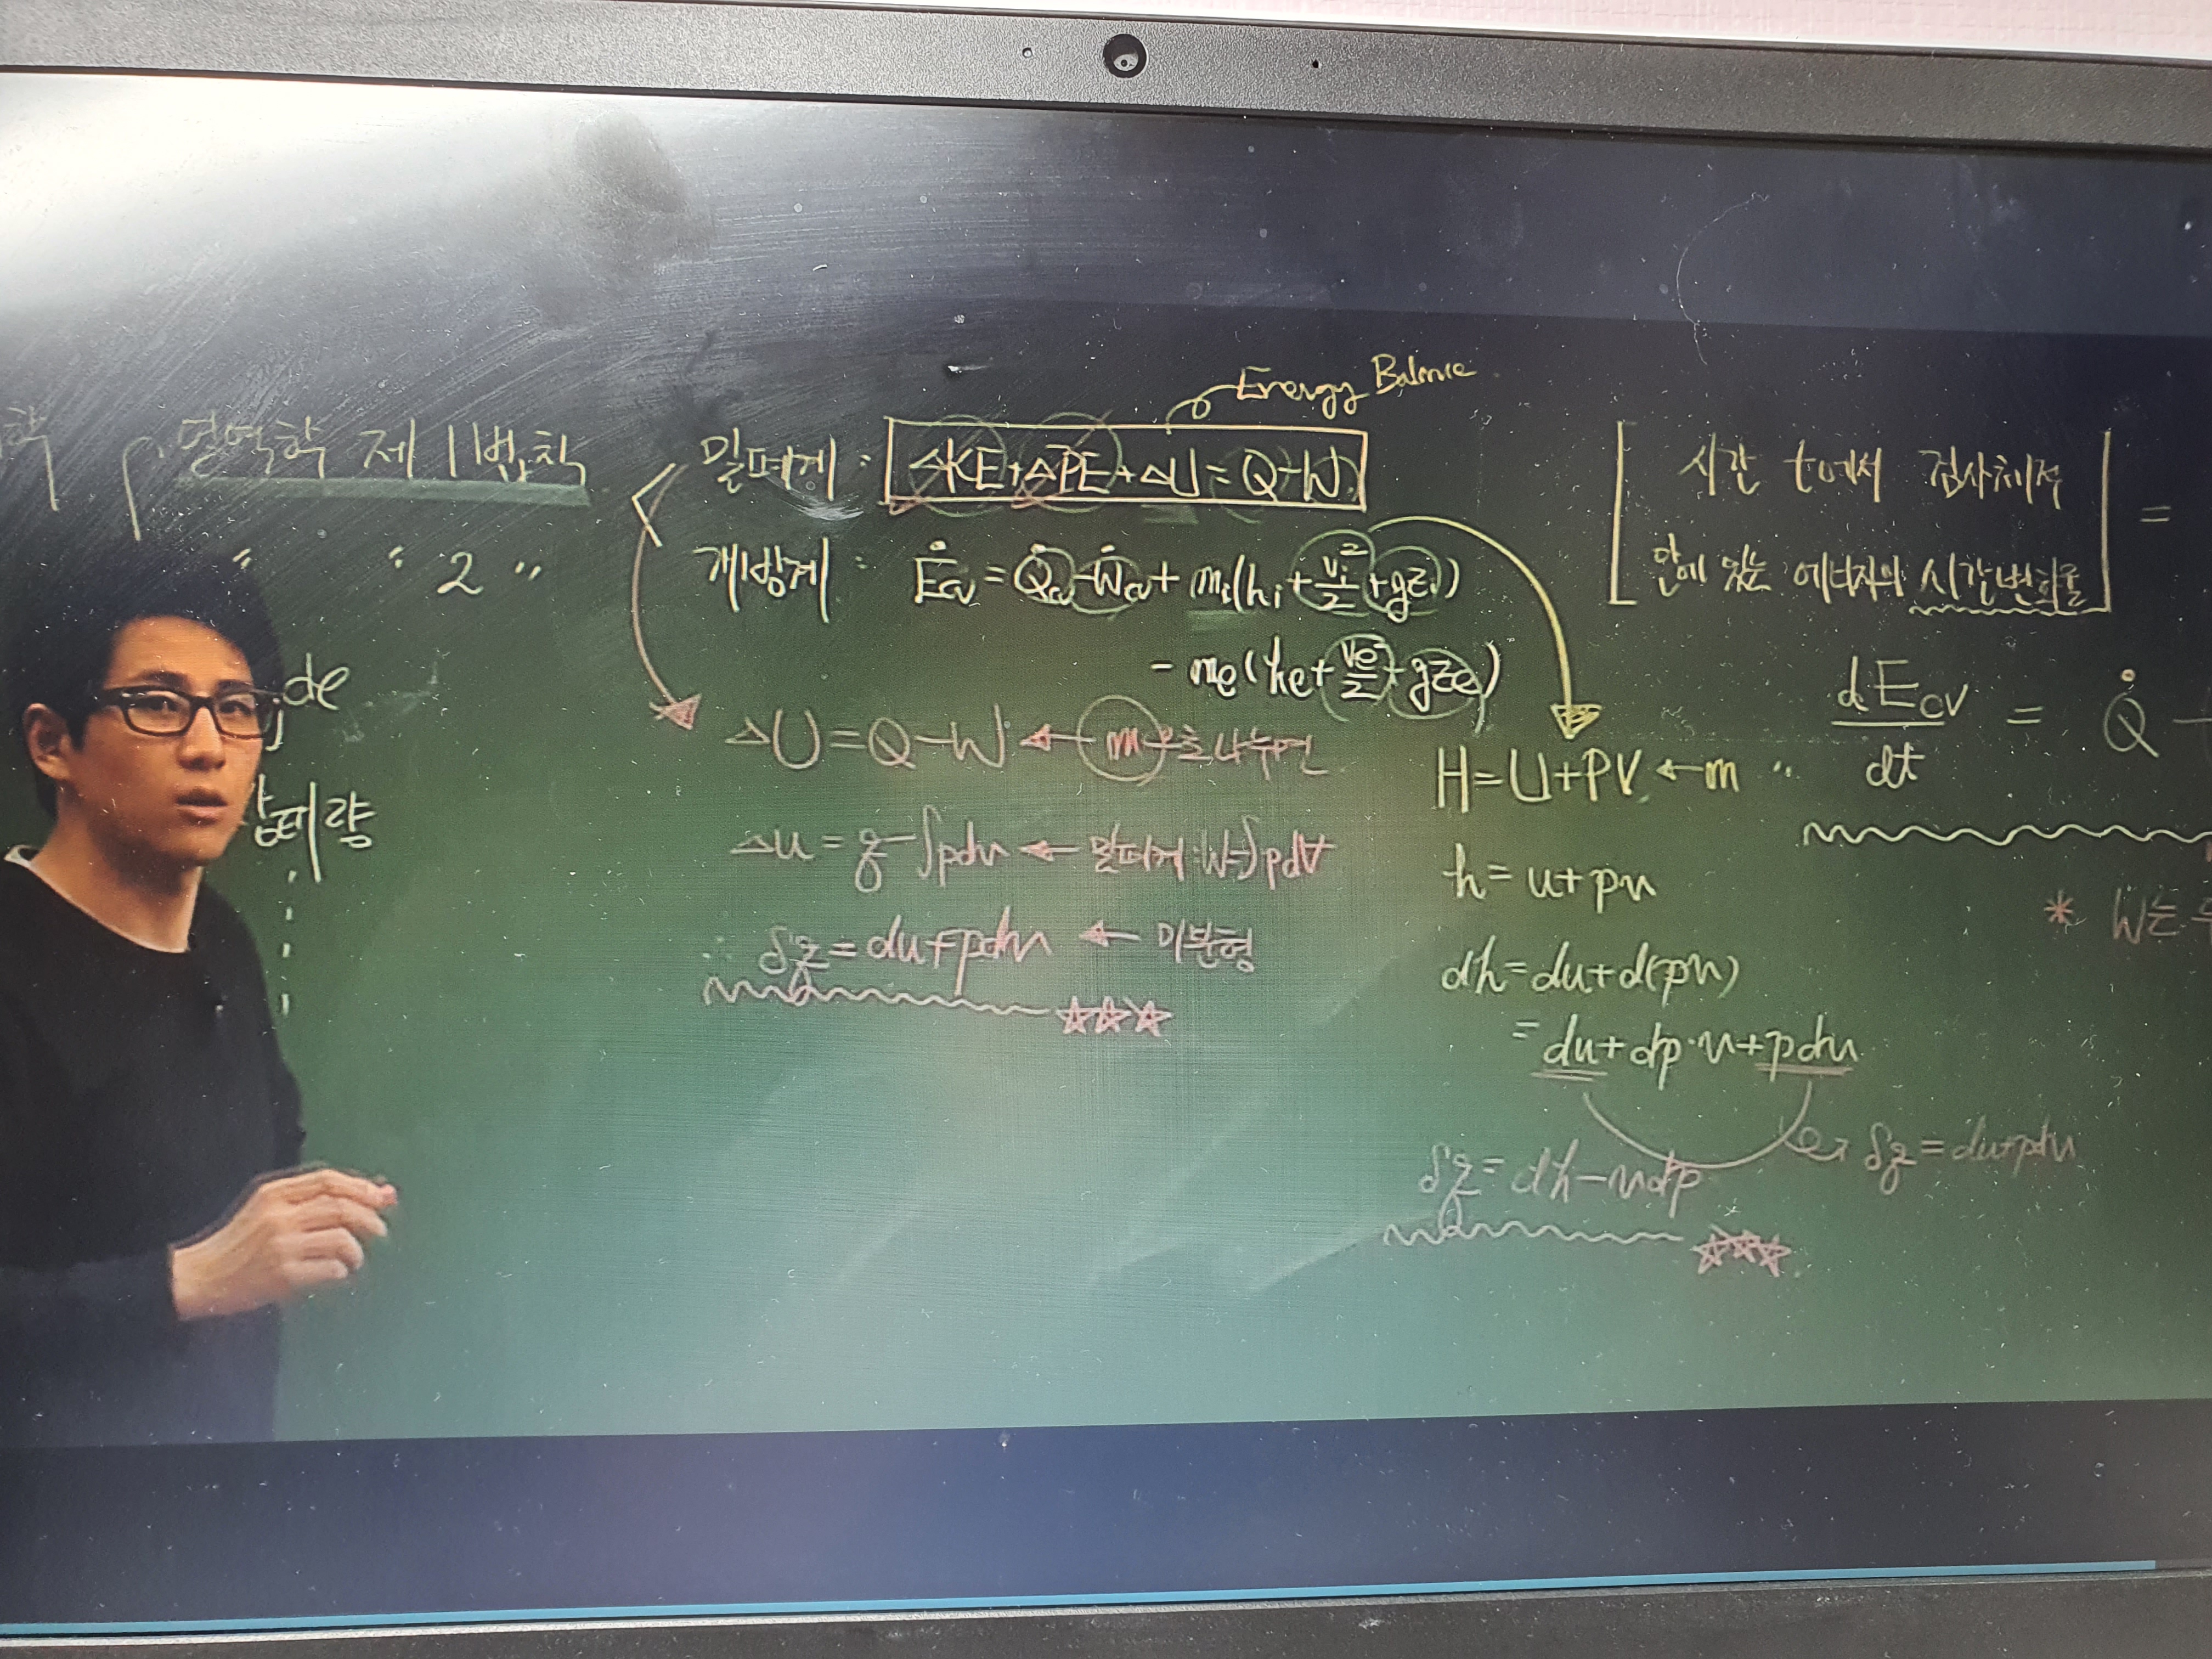 열역학 제 1법칙
" " 2 "
밀폐계 : ΔKE+ΔPE+ΔU=Q-W
Energy Balance
개방계 : Ėcv = Q̇cv - Ẇcv + ṁi(hi + vi²/2 + gzi)
- ṁe(he + ve²/2 + gze)
ΔU = Q - W ← m으로 나누면
Δu = q - ∫pdv ← 밀폐계 : W=∫pdV
∴ δq = du + pdv ← 미분형
H = U + PV ← m "
h = u + pv
dh = du + d(pv)
= du + dp·v + pdv
δq = du + pdv
δq = dh - vdp
시간 t에서 검사체적
안에 있는 에너지의 시간변화율
=
dEcv/dt = Q̇ -
* W는